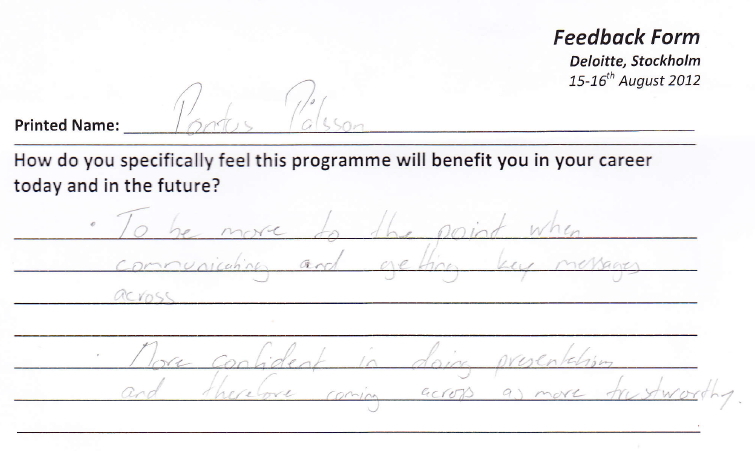 Feedback Form
Deloitte, Stockholm
15-16th August 2012
Printed Name: Pontus Pålsson
How do you specifically feel this programme will benefit you in your career
today and in the future?
• To be more to the point when
communicating and getting key messages
across
• More confident in doing presentation
and therefore coming across as more trustworthy.